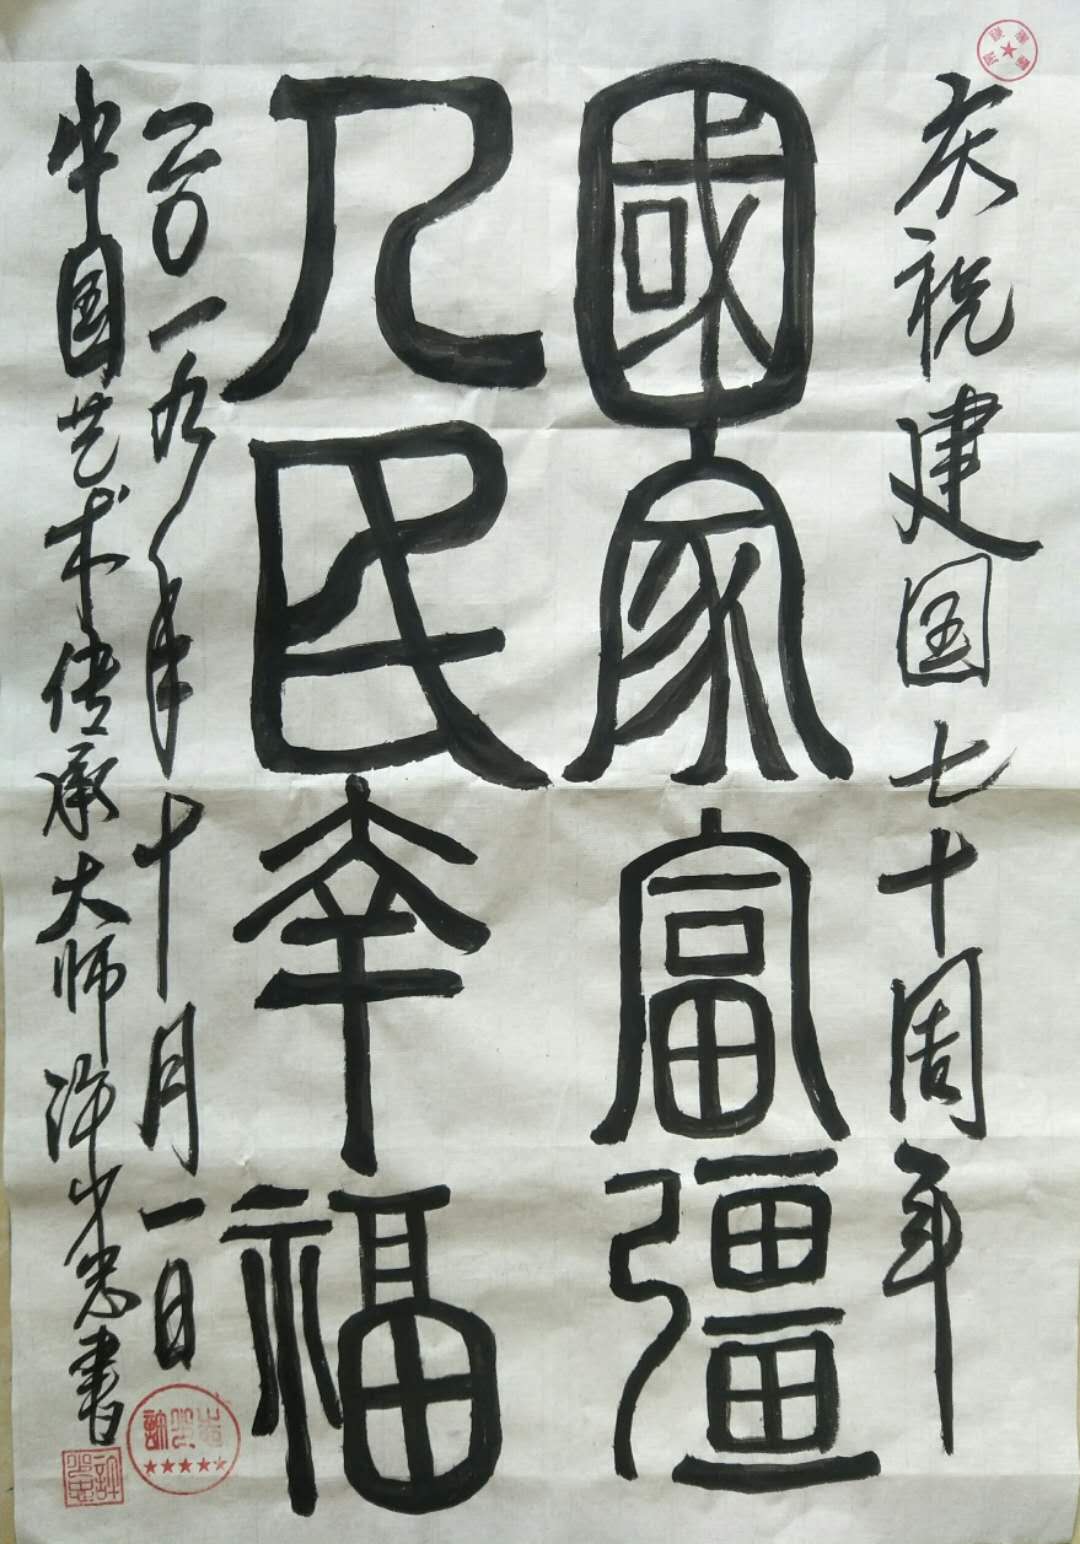 庆祝建国七十周年
國家富彊
人民幸福
二〇一九年十月一日
中国艺术传承大师许光忠書